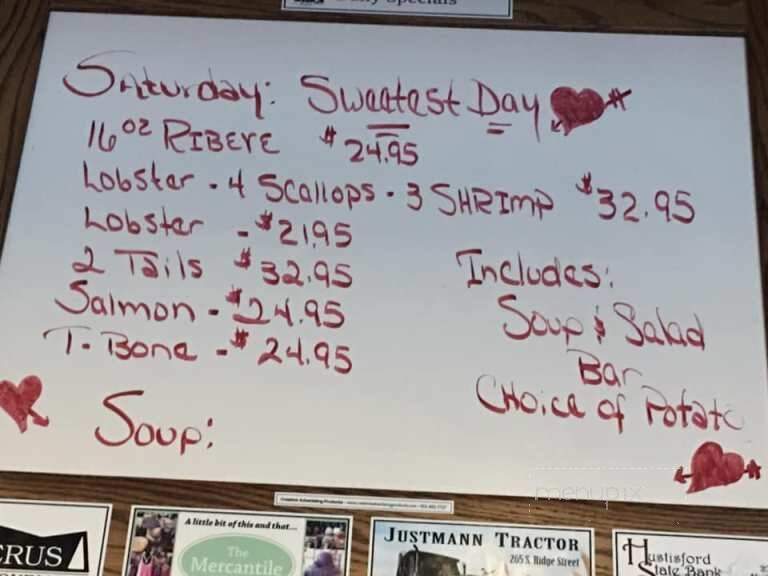 Daily Specials
Saturday: Sweetest Day
16 oz RIBEYE $24.95
Lobster - 4 Scallops - 3 SHRIMP $32.95
Lobster - $21.95
2 Tails $32.95
Salmon - $24.95
T-Bone - $24.95
Includes:
Soup & Salad
Bar
CHoice of Potato
Soup:
menupix
A little bit of this and that...
The
Mercantile
JUSTMANN TRACTOR
265 S. Ridge Street
Hustisford
State Bank